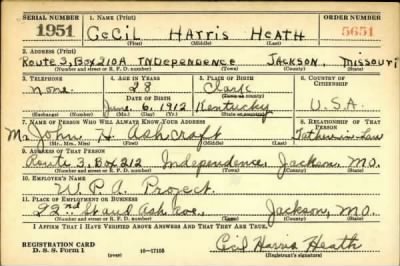 SERIAL NUMBER 1. NAME (Print) ORDER NUMBER
1951 CeCil HArris HeATH 5651
(First) (Middle) (Last)
2. ADDRESS (Print)
Route 3, Box 210A INDependence JACKSON, Missouri
(Number and street or R. F. D. number) (Town) (County) (State)
3. TELEPHONE 4. AGE IN YEARS 5. PLACE OF BIRTH 6. COUNTRY OF CITIZENSHIP
none. 28 Clark
DATE OF BIRTH (Town or county)
June, 6, 1912 Kentucky U.S.A.
(Exchange) (Number) (Mo.) (Day) (Yr.) (State or country)
7. NAME OF PERSON WHO WILL ALWAYS KNOW YOUR ADDRESS 8. RELATIONSHIP OF THAT PERSON
Mr. John H. Ashcraft Father-in-Law
(Mr., Mrs., Miss) (First) (Middle) (Last)
9. ADDRESS OF THAT PERSON
Route 3, Box 212 Independence, Jackson, MO.
(Number and street or R. F. D. number) (Town) (County) (State)
10. EMPLOYER'S NAME
W.P.A. Project.
11. PLACE OF EMPLOYMENT OR BUSINESS
22nd St and Ash Ave, Jackson, MO.
(Number and street or R. F. D. number) (Town) (County) (State)
I AFFIRM THAT I HAVE VERIFIED ABOVE ANSWERS AND THAT THEY ARE TRUE.
REGISTRATION CARD
D. S. S. Form 1 16—17105 Cecil Harris Heath
(over) (Registrant's signature)